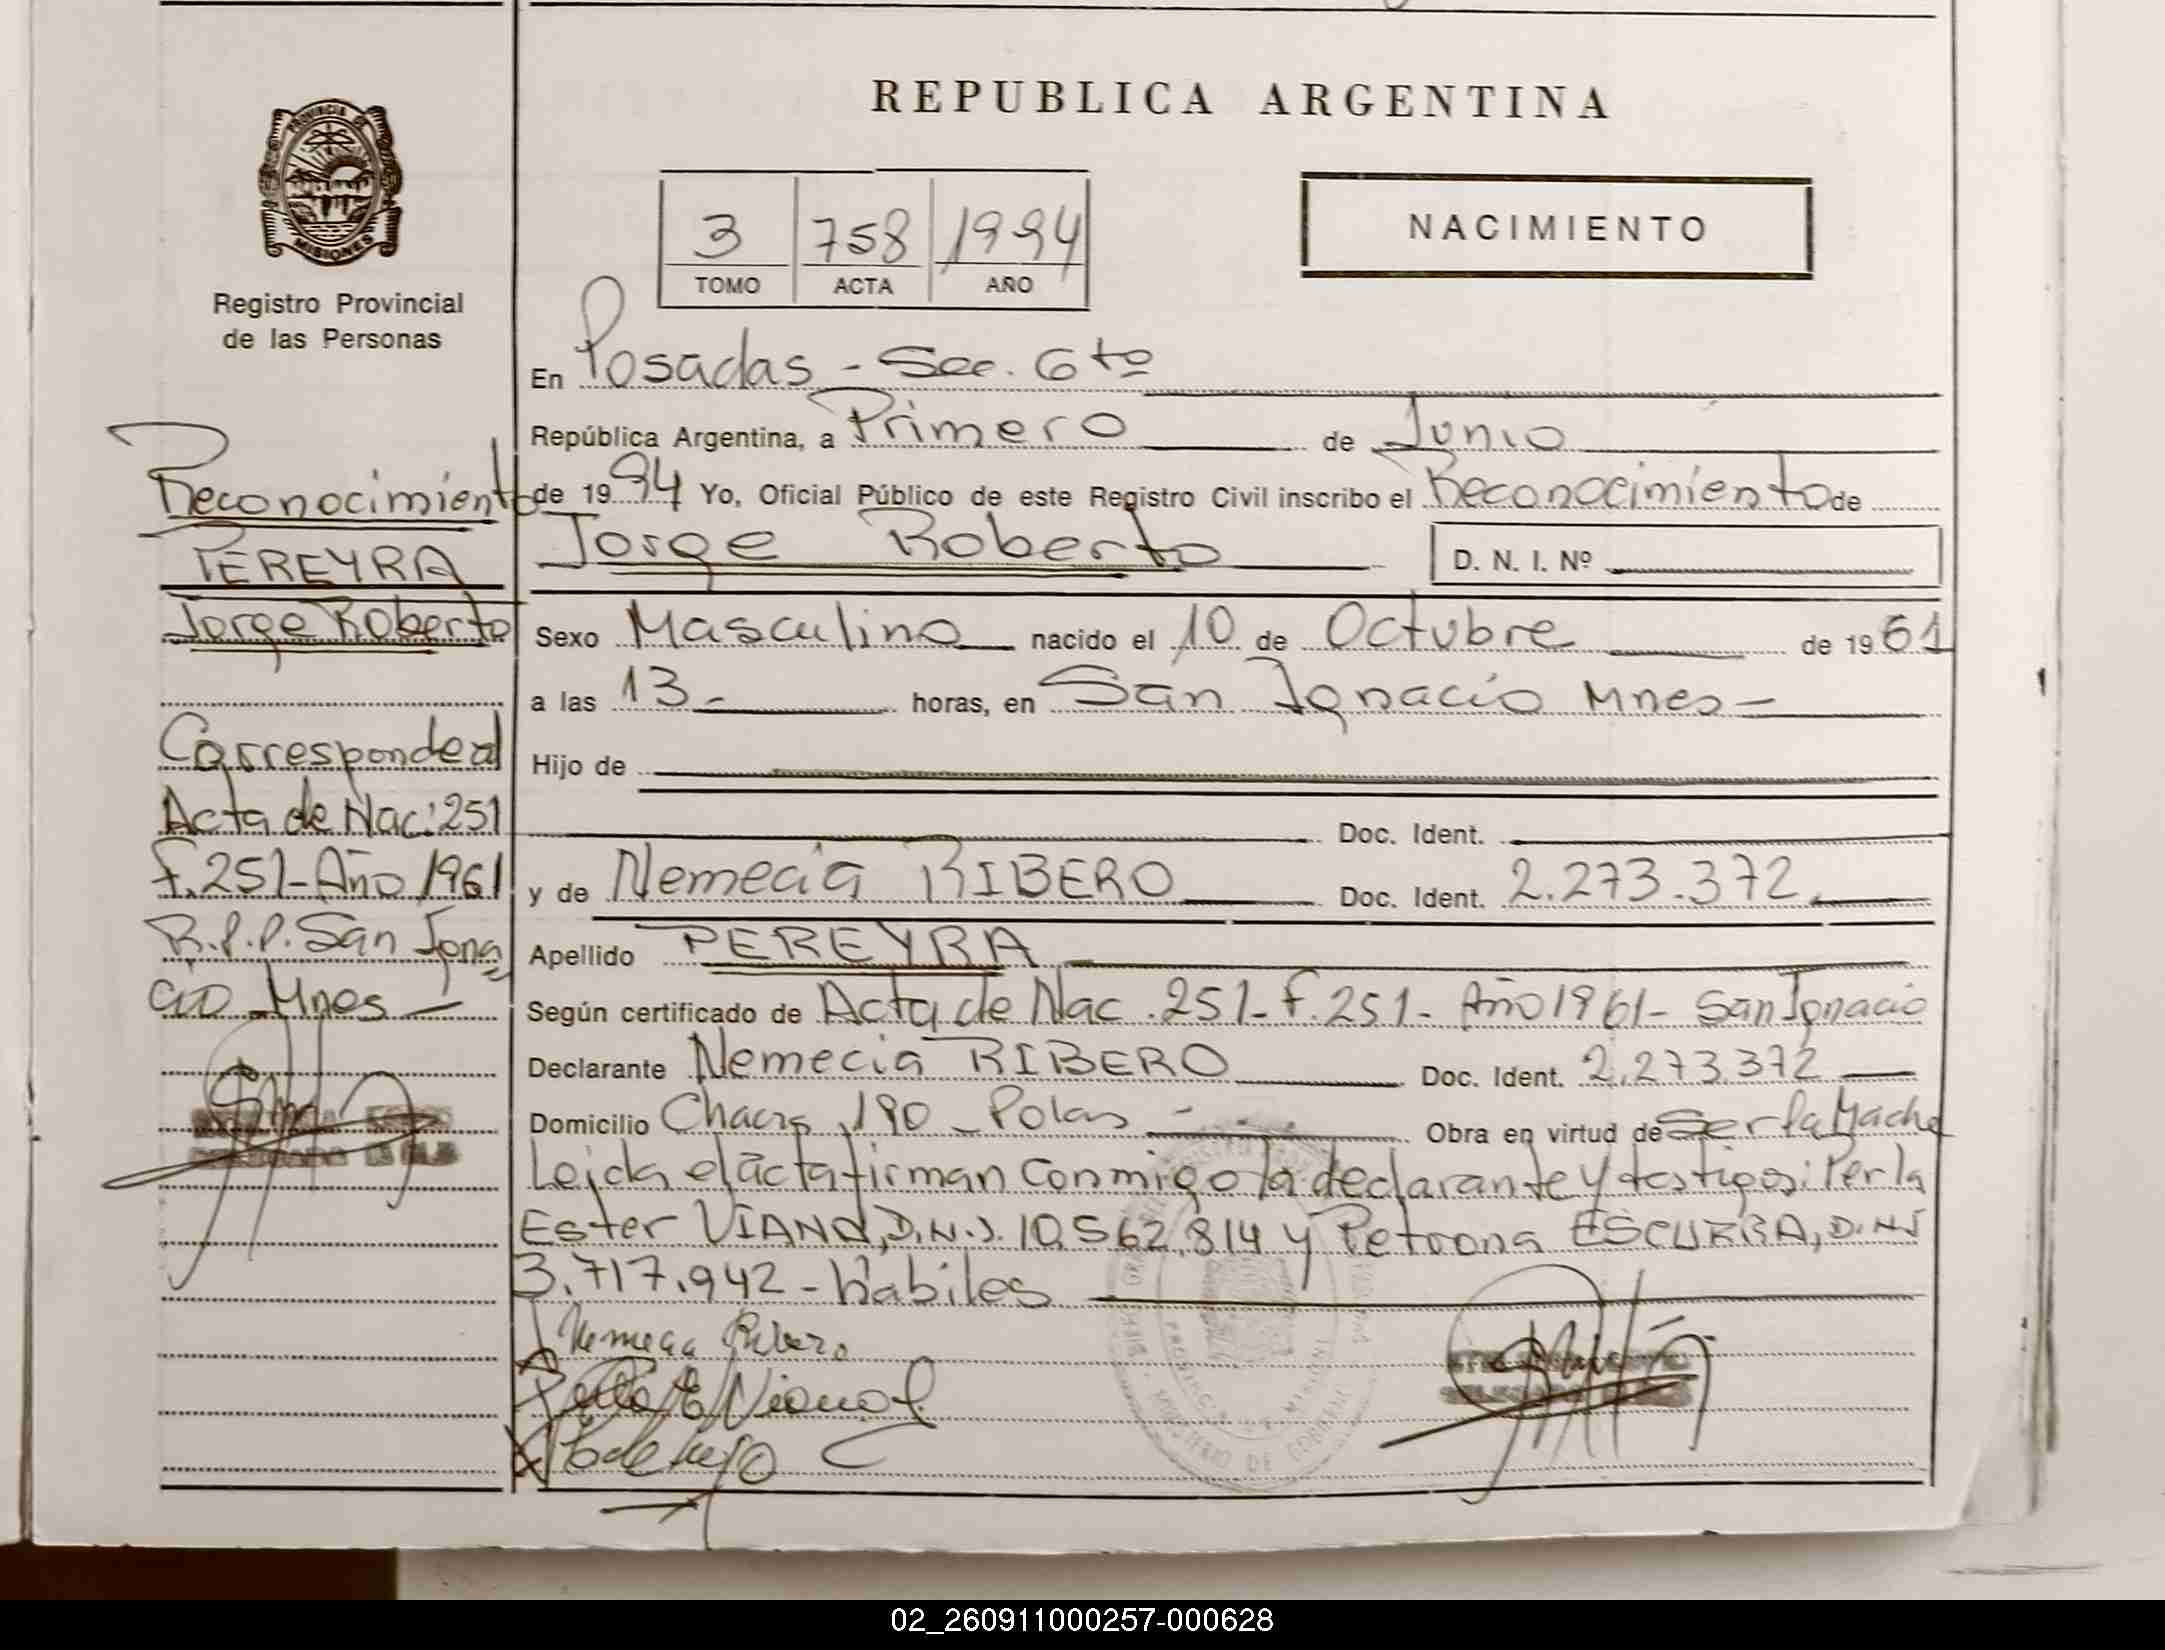 REPUBLICA ARGENTINA
PROVINCIA DE
MISIONES
Registro Provincial
de las Personas
3 758 1994
TOMO ACTA AÑO
NACIMIENTO
En Posadas - Sec. 6to
República Argentina, a Primero de Junio
de 1994 Yo, Oficial Público de este Registro Civil inscribo el Reconocimiento de
Jorge Roberto D. N. I. Nº
Sexo Masculino nacido el 10 de Octubre de 1961
a las 13- horas, en San Ignacio Mnes-
Hijo de
Doc. Ident.
y de Nemecia RIBERO Doc. Ident. 2.273.372
Apellido PEREYRA
Según certificado de Acta de Nac. 251- f. 251- Año 1961- San Ignacio
Declarante Nemecia RIBERO Doc. Ident. 2.273.372
Domicilio Chacra 190 - Pdas - Obra en virtud de Ser la Madre
Leida el acta firman conmigo la declarante y testigos: Perla
Ester VIANA, D.N.I. 10.562.814 y Petrona ESCURRA, D.N.I
3.717.942 - hábiles
Nemecia Ribero
Reconocimiento
PEREYRA
Jorge Roberto
Corresponde al
Acta de Nac: 251
f. 251- Año 1961
R.P.P. San Igna
cio Mnes -
02_260911000257-000628